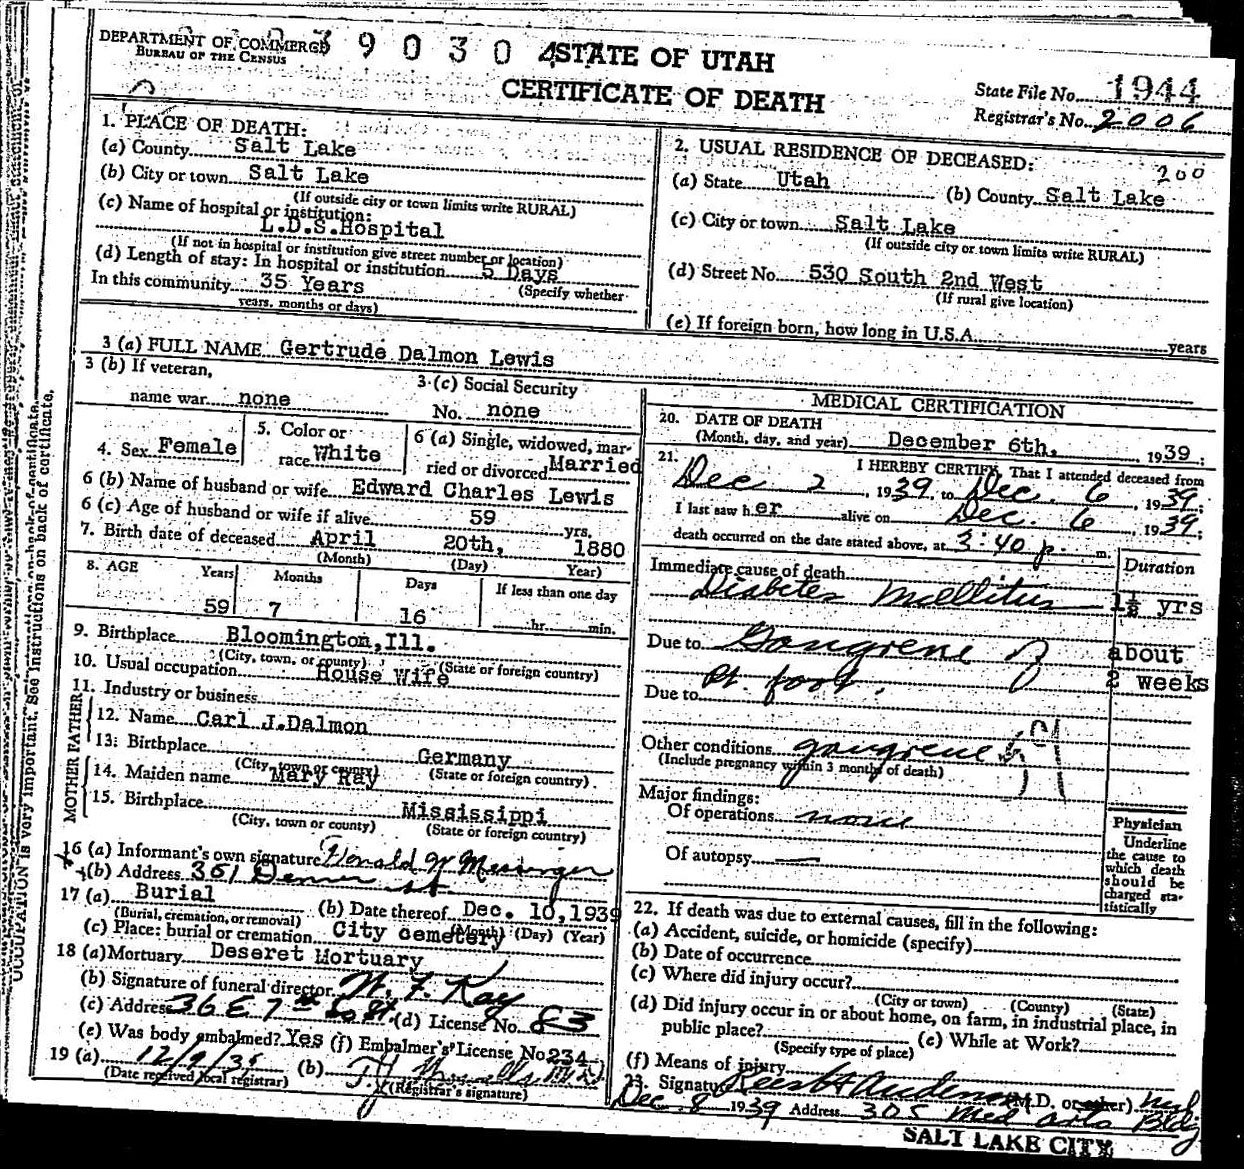 DEPARTMENT OF COMMERCE
BUREAU OF THE CENSUS
39030
STATE OF UTAH
CERTIFICATE OF DEATH
State File No. 1944
Registrar's No. 2006
1. PLACE OF DEATH:
(a) County Salt Lake
(b) City or town Salt Lake
(If outside city or town limits write RURAL)
(c) Name of hospital or institution:
L.D.S.Hospital
(If not in hospital or institution give street number or location)
(d) Length of stay: In hospital or institution 5 Days
(Specify whether
In this community 35 Years
years, months or days)
2. USUAL RESIDENCE OF DECEASED:
200
(a) State Utah (b) County Salt Lake
(c) City or town Salt Lake
(If outside city or town limits write RURAL)
(d) Street No. 530 South 2nd West
(If rural give location)
(e) If foreign born, how long in U.S.A. years
3 (a) FULL NAME Gertrude Dalmon Lewis
3 (b) If veteran,
name war none
3 (c) Social Security
No. none
4. Sex Female
5. Color or
race White
6 (a) Single, widowed, mar-
ried or divorced Married
6 (b) Name of husband or wife Edward Charles Lewis
6 (c) Age of husband or wife if alive 59 yrs.
7. Birth date of deceased April 20th, 1880
(Month) (Day) Year)
8. AGE Years Months Days If less than one day
59 7 16 hr. min.
9. Birthplace Bloomington,Ill.
(City, town, or county) (State or foreign country)
10. Usual occupation House Wife
11. Industry or business
FATHER
12. Name Carl J.Dalmon
13. Birthplace Germany
(City, town or county) (State or foreign country)
MOTHER
14. Maiden name Mary Ray
15. Birthplace Mississippi
(City, town or county) (State or foreign country)
16 (a) Informant's own signature Donald W Messinger
(b) Address 361 Denver St
17 (a) Burial (b) Date thereof Dec. 10,1939
(Burial, cremation, or removal) (Month) (Day) (Year)
(c) Place: burial or cremation City cemetery
18 (a) Mortuary Deseret Mortuary
(b) Signature of funeral director W. F. Kay
(c) Address 36 E 7th So St. (d) License No. 83
(e) Was body embalmed? Yes (f) Embalmer's License No 234
19 (a) 12/9/39 (b)
(Date received local registrar) (Registrar's signature)
MEDICAL CERTIFICATION
20. DATE OF DEATH
(Month, day, and year) December 6th, 1939;
21. I HEREBY CERTIFY, That I attended deceased from
Dec 2, 1939, to Dec. 6, 1939;
I last saw h er alive on Dec. 6, 1939;
death occurred on the date stated above, at 3:40 p. m.
Immediate cause of death Duration
Diabetes Mellitus 1½ yrs
Due to Gangrene of about
Rt. foot. 2 weeks
Due to
Other conditions gangrene
(Include pregnancy within 3 months of death)
Major findings:
Of operations none
Of autopsy —
Physician
Underline
the cause to
which death
should be
charged sta-
tistically
22. If death was due to external causes, fill in the following:
(a) Accident, suicide, or homicide (specify)
(b) Date of occurrence
(c) Where did injury occur?
(City or town) (County) (State)
(d) Did injury occur in or about home, on farm, in industrial place, in
public place? (e) While at Work?
(Specify type of place)
(f) Means of injury
23. Signature Anderson (M.D. or other) md
Dec. 8 1939 Address 305 Med arts Bldg
SALT LAKE CITY
OCCUPATION is very important. See instructions on back of certificate.